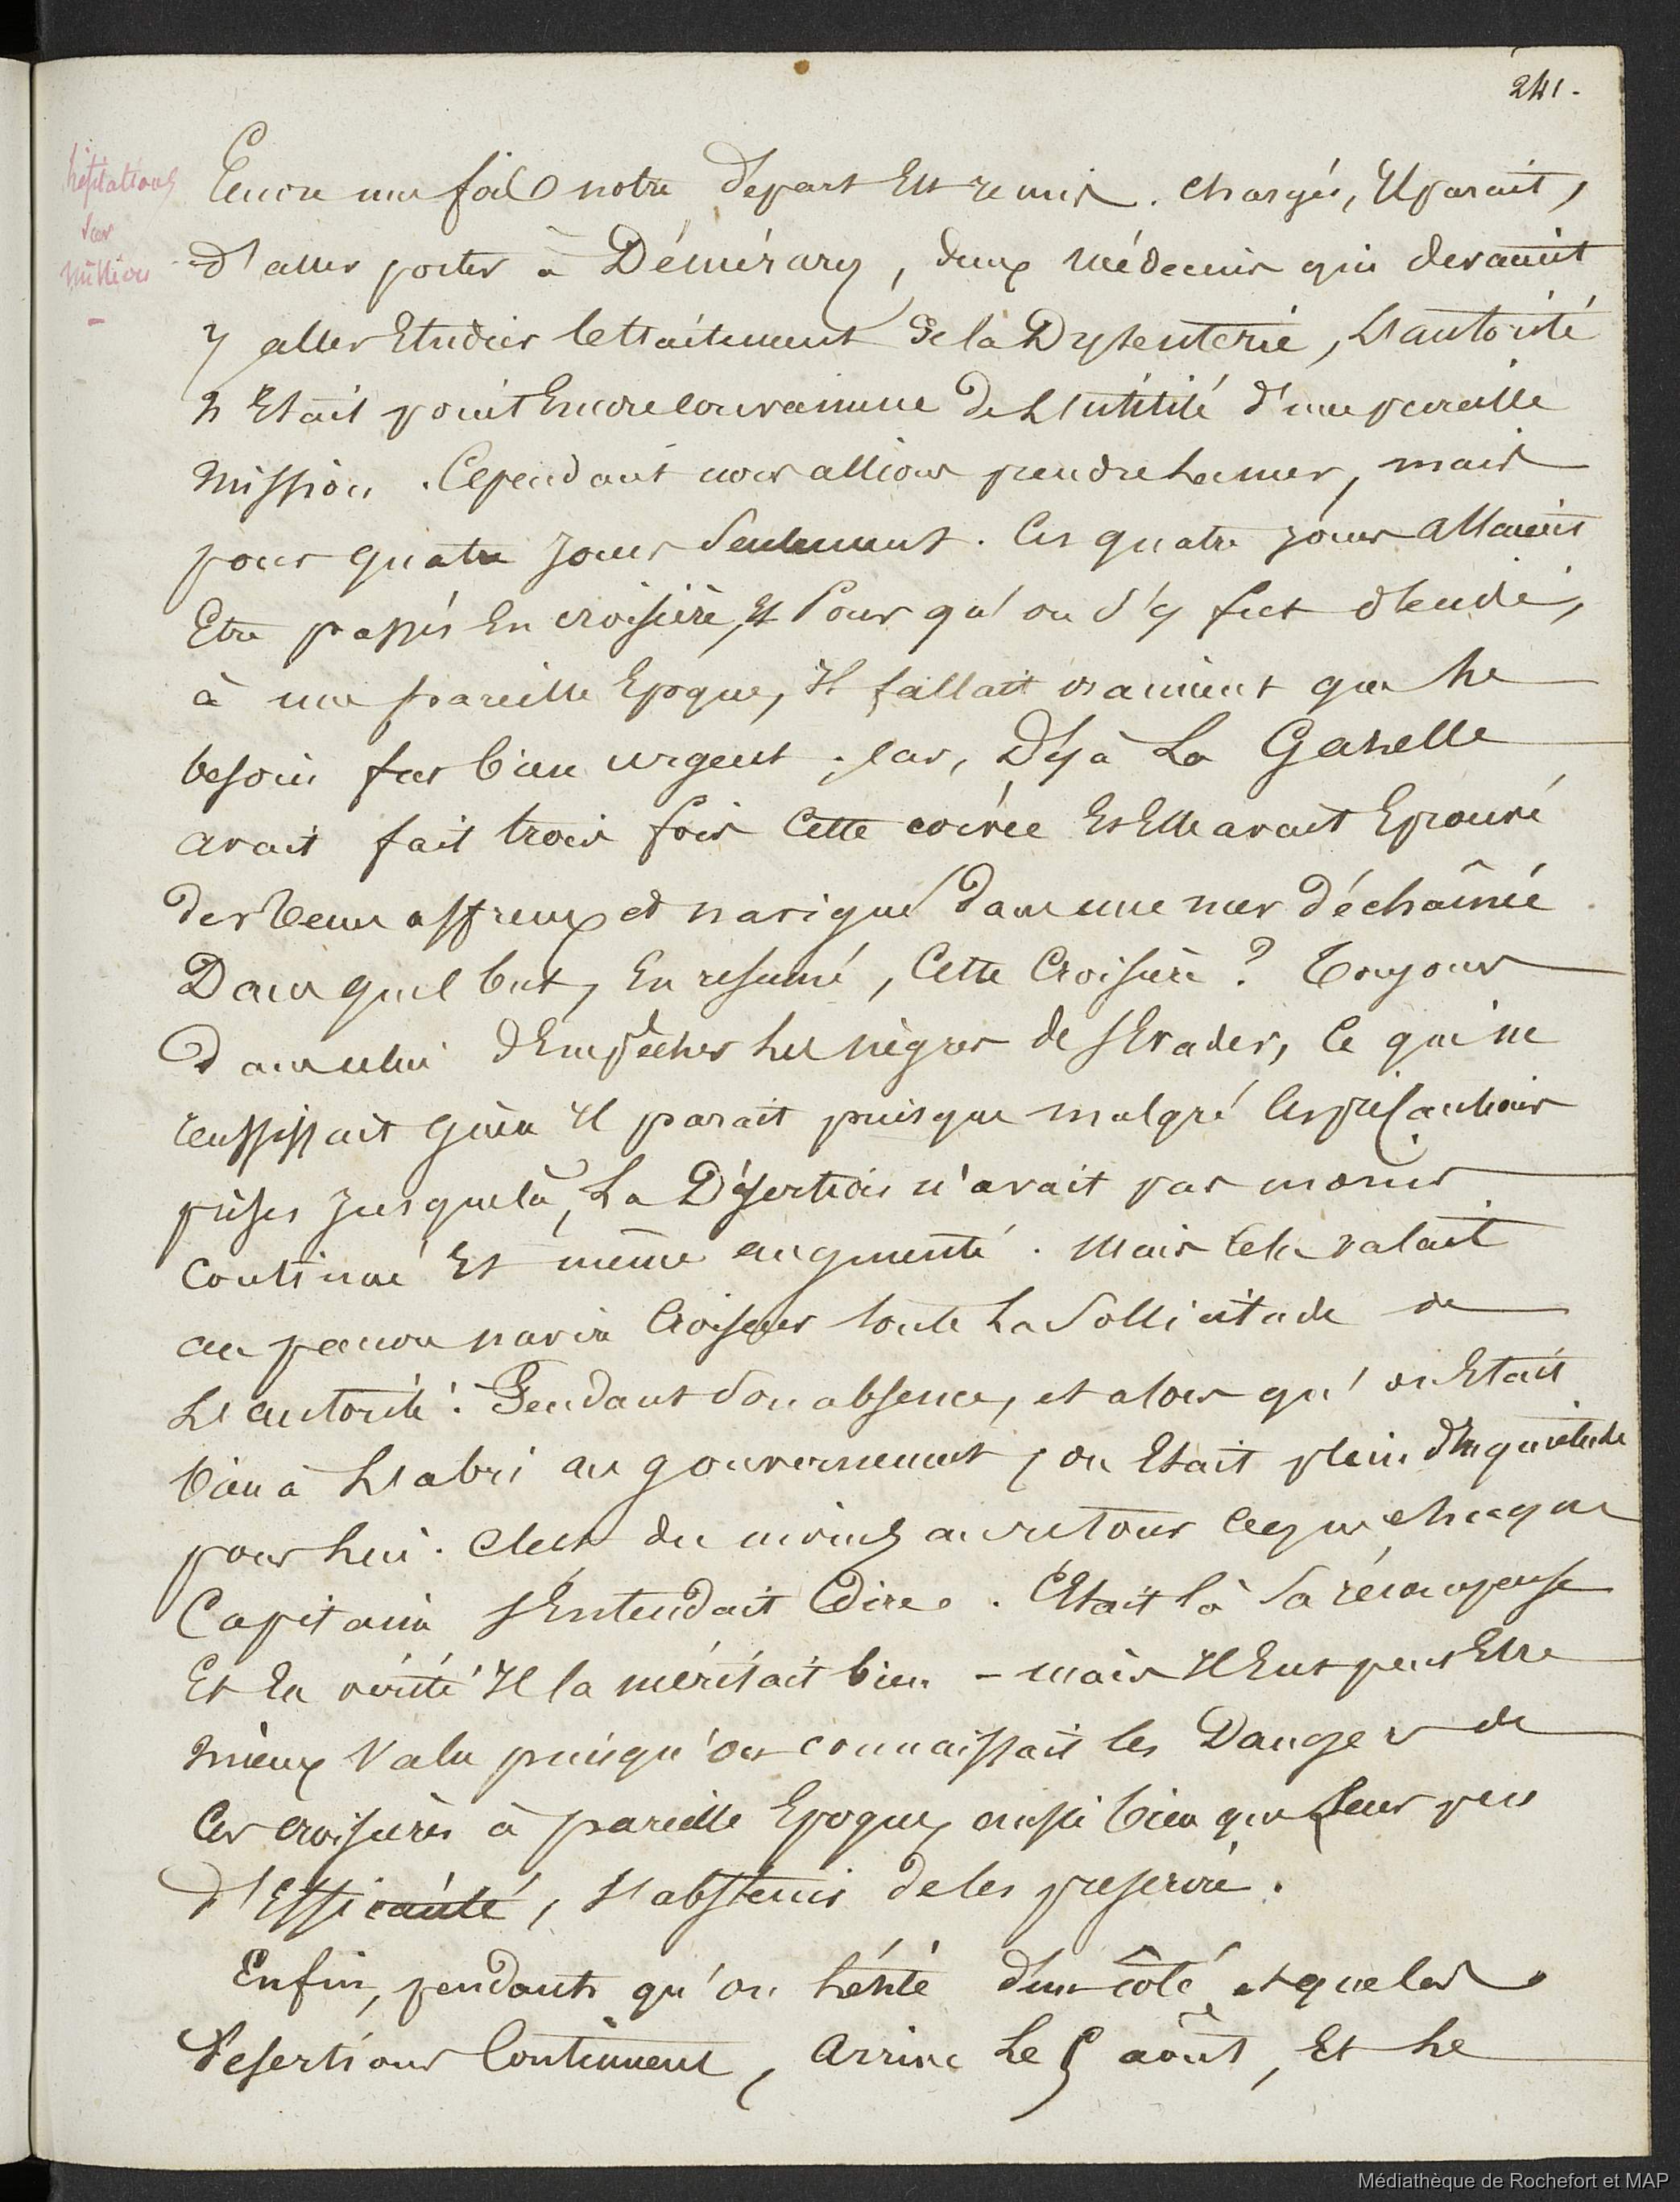 241.
hésitations
sur
mission
Encore une fois notre départ est remis. Chargés, Il parait,
d'aller porter à Démérary, deux médecins qui devaient
y aller Etudier le traitement de la Dysenterie, L'autorité
n'Etait point Encore convaincue de L'utilité d'une pareille
mission. Cependant nous allions prendre La mer, mais
pour quatre jours Seulement. Ces quatre jours allaient
Etre passés En croisière, Et Pour qu'on s'y fut décidé,
à une pareille Epoque, Il fallait vraiment que Le
besoin fut bien urgent. Car, Déjà La Gazelle
avait fait trois fois Cette corvée Et Elle avait Eprouvé
des tems affreux et navigué dans une mer déchaînée.
Dans quel but, En resumé, Cette Croisière? Toujours
dans celui d'Empêcher Les nègres de s'Evader, Ce qui ne
reussissait guère Il parait puisque malgré les précautions
prises jusque là, La Désertion n'avait pas moins
continué Et même augmenté. Mais Cela valait
au pauvre navire Croiseur toute La Sollicitude de
L'autorité. Pendant Son absence, et alors qu'on Etait
bien à L'abri au gouvernement, on Etait plein d'Inquiétude
pour Lui. C'est du moins au retour ce que chaque
Capitaine s'Entendait Dire. C'Etait là Sa récompense
Et En vérité Il la méritait bien - mais Il Eut peut Etre
mieux Valu puisqu'on connaissait les Dangers de
Ces croisières à pareille Epoque, aussi bien que Leur peu
d'Efficacité, s'abstenir de les prescrire.
Enfin, pendant qu'on hésite d'un côté et que les
Desertions Continuent, Arrive Le 5 août, Et Le
Médiathèque de Rochefort et MAP